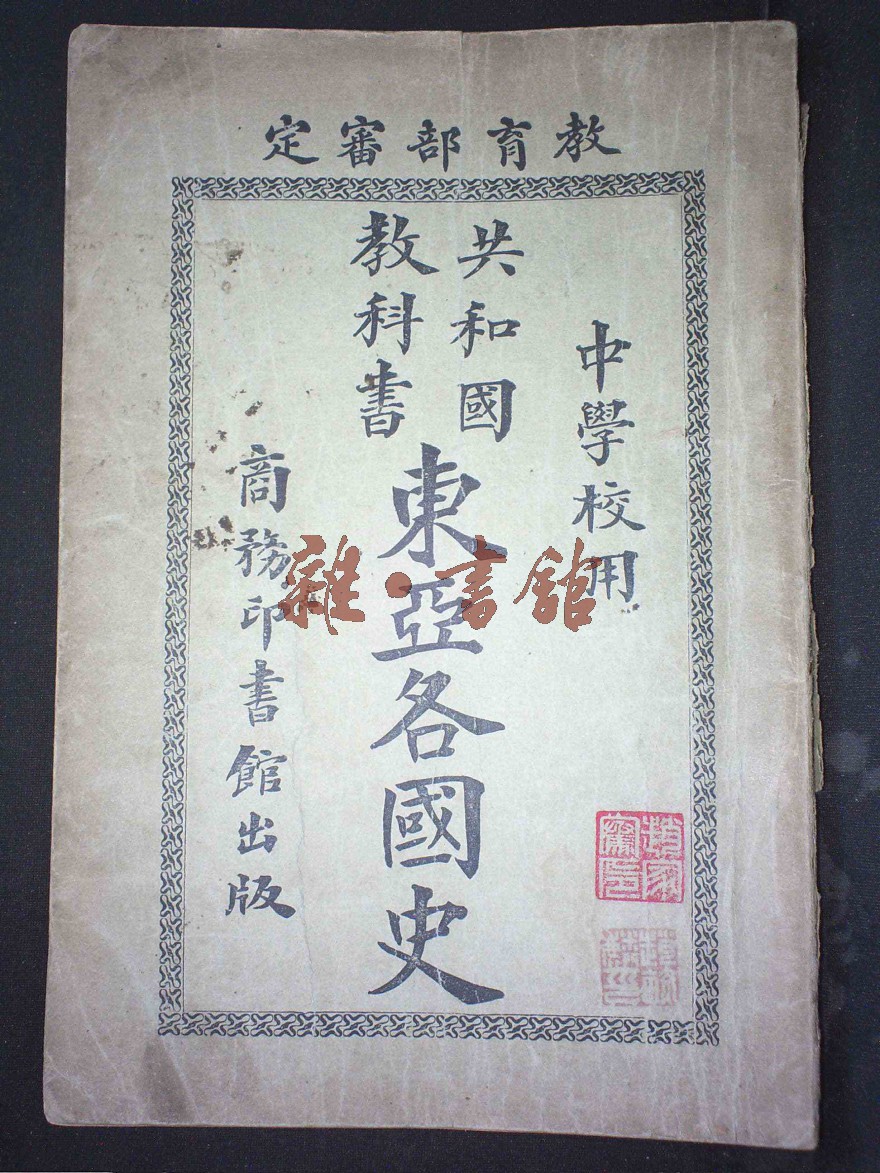 教育部審定
中學校用
共和國
教科書
東亞各國史
商務印書館出版
雜·書館